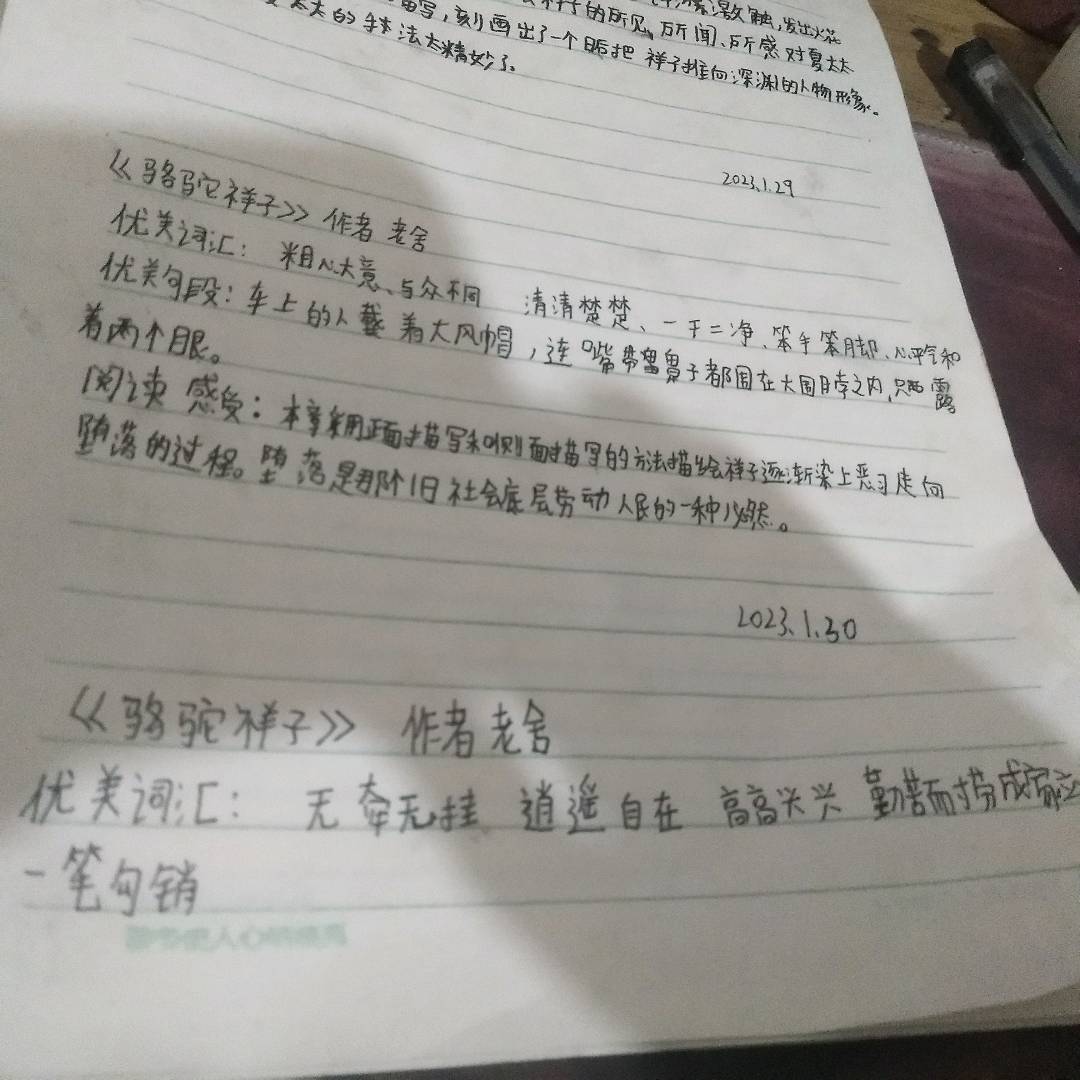 激触,发出火花
描写,刻画出了一个 把祥子推向深渊的人物形象。
祥子的所见、所闻、所感对夏太太
太太的手法太精妙了。
2023.1.29
《骆驼祥子》 作者 老舍
优美词汇: 粗心大意、与众不同 清清楚楚、一干二净、笨手笨脚、心平气和
优美句段:车上的人戴着大风帽,连嘴带鼻子都围在大围脖之内,只露
着两个眼。
阅读感受:本章采用正面描写和侧面描写的方法描绘祥子逐渐染上恶习走向
堕落的过程。堕落是那个旧社会底层劳动人民的一种必然。
2023.1.30
《骆驼祥子》 作者 老舍
优美词汇: 无牵无挂 逍遥自在 高高兴兴 勤苦耐劳 成家立
一笔勾销